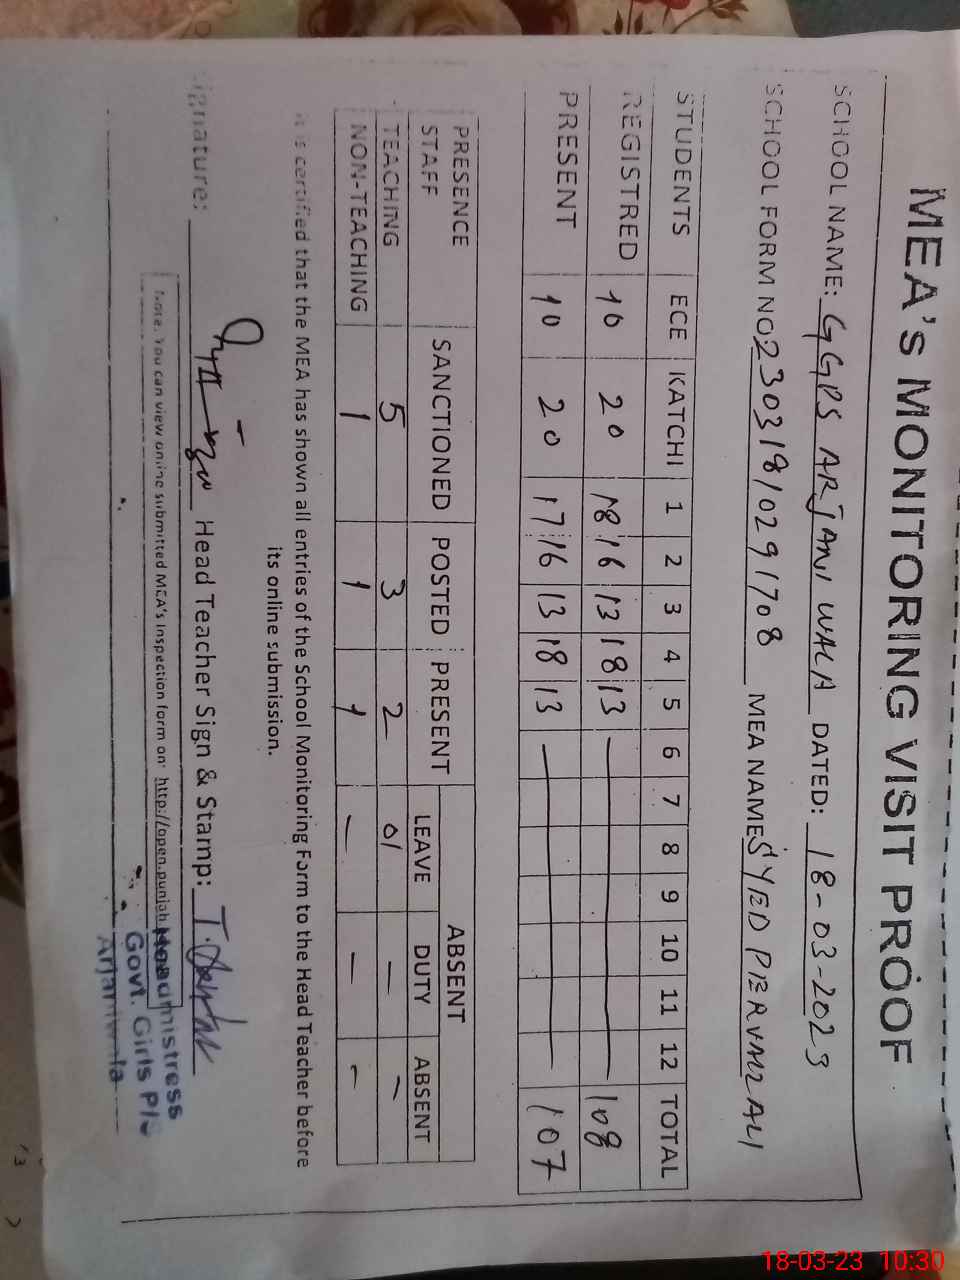 MEA's MONITORING VISIT PROOF
SCHOOL NAME: GGPS ARJANI WALA DATED: 18-03-2023
SCHOOL FORM NO 230318/0291708 MEA NAME SYED PERVAIZ ALI
STUDENTS ECE KATCHI 1 2 3 4 5 6 7 8 9 10 11 12 TOTAL
REGISTRED 10 20 18 16 13 18 13 — 108
PRESENT 10 20 17 16 13 18 13 — 107
PRESENCE STAFF SANCTIONED POSTED PRESENT ABSENT
LEAVE DUTY ABSENT
TEACHING 5 3 2 01 — —
NON-TEACHING 1 1 1 — — —
It is certified that the MEA has shown all entries of the School Monitoring Form to the Head Teacher before
its online submission.
Signature: Head Teacher Sign & Stamp:
Note. You can view online submitted MEA's Inspection form on http://open.punjab
Headmistress
Govt. Girls P/S
Arjaniwala
18-03-23 10:30